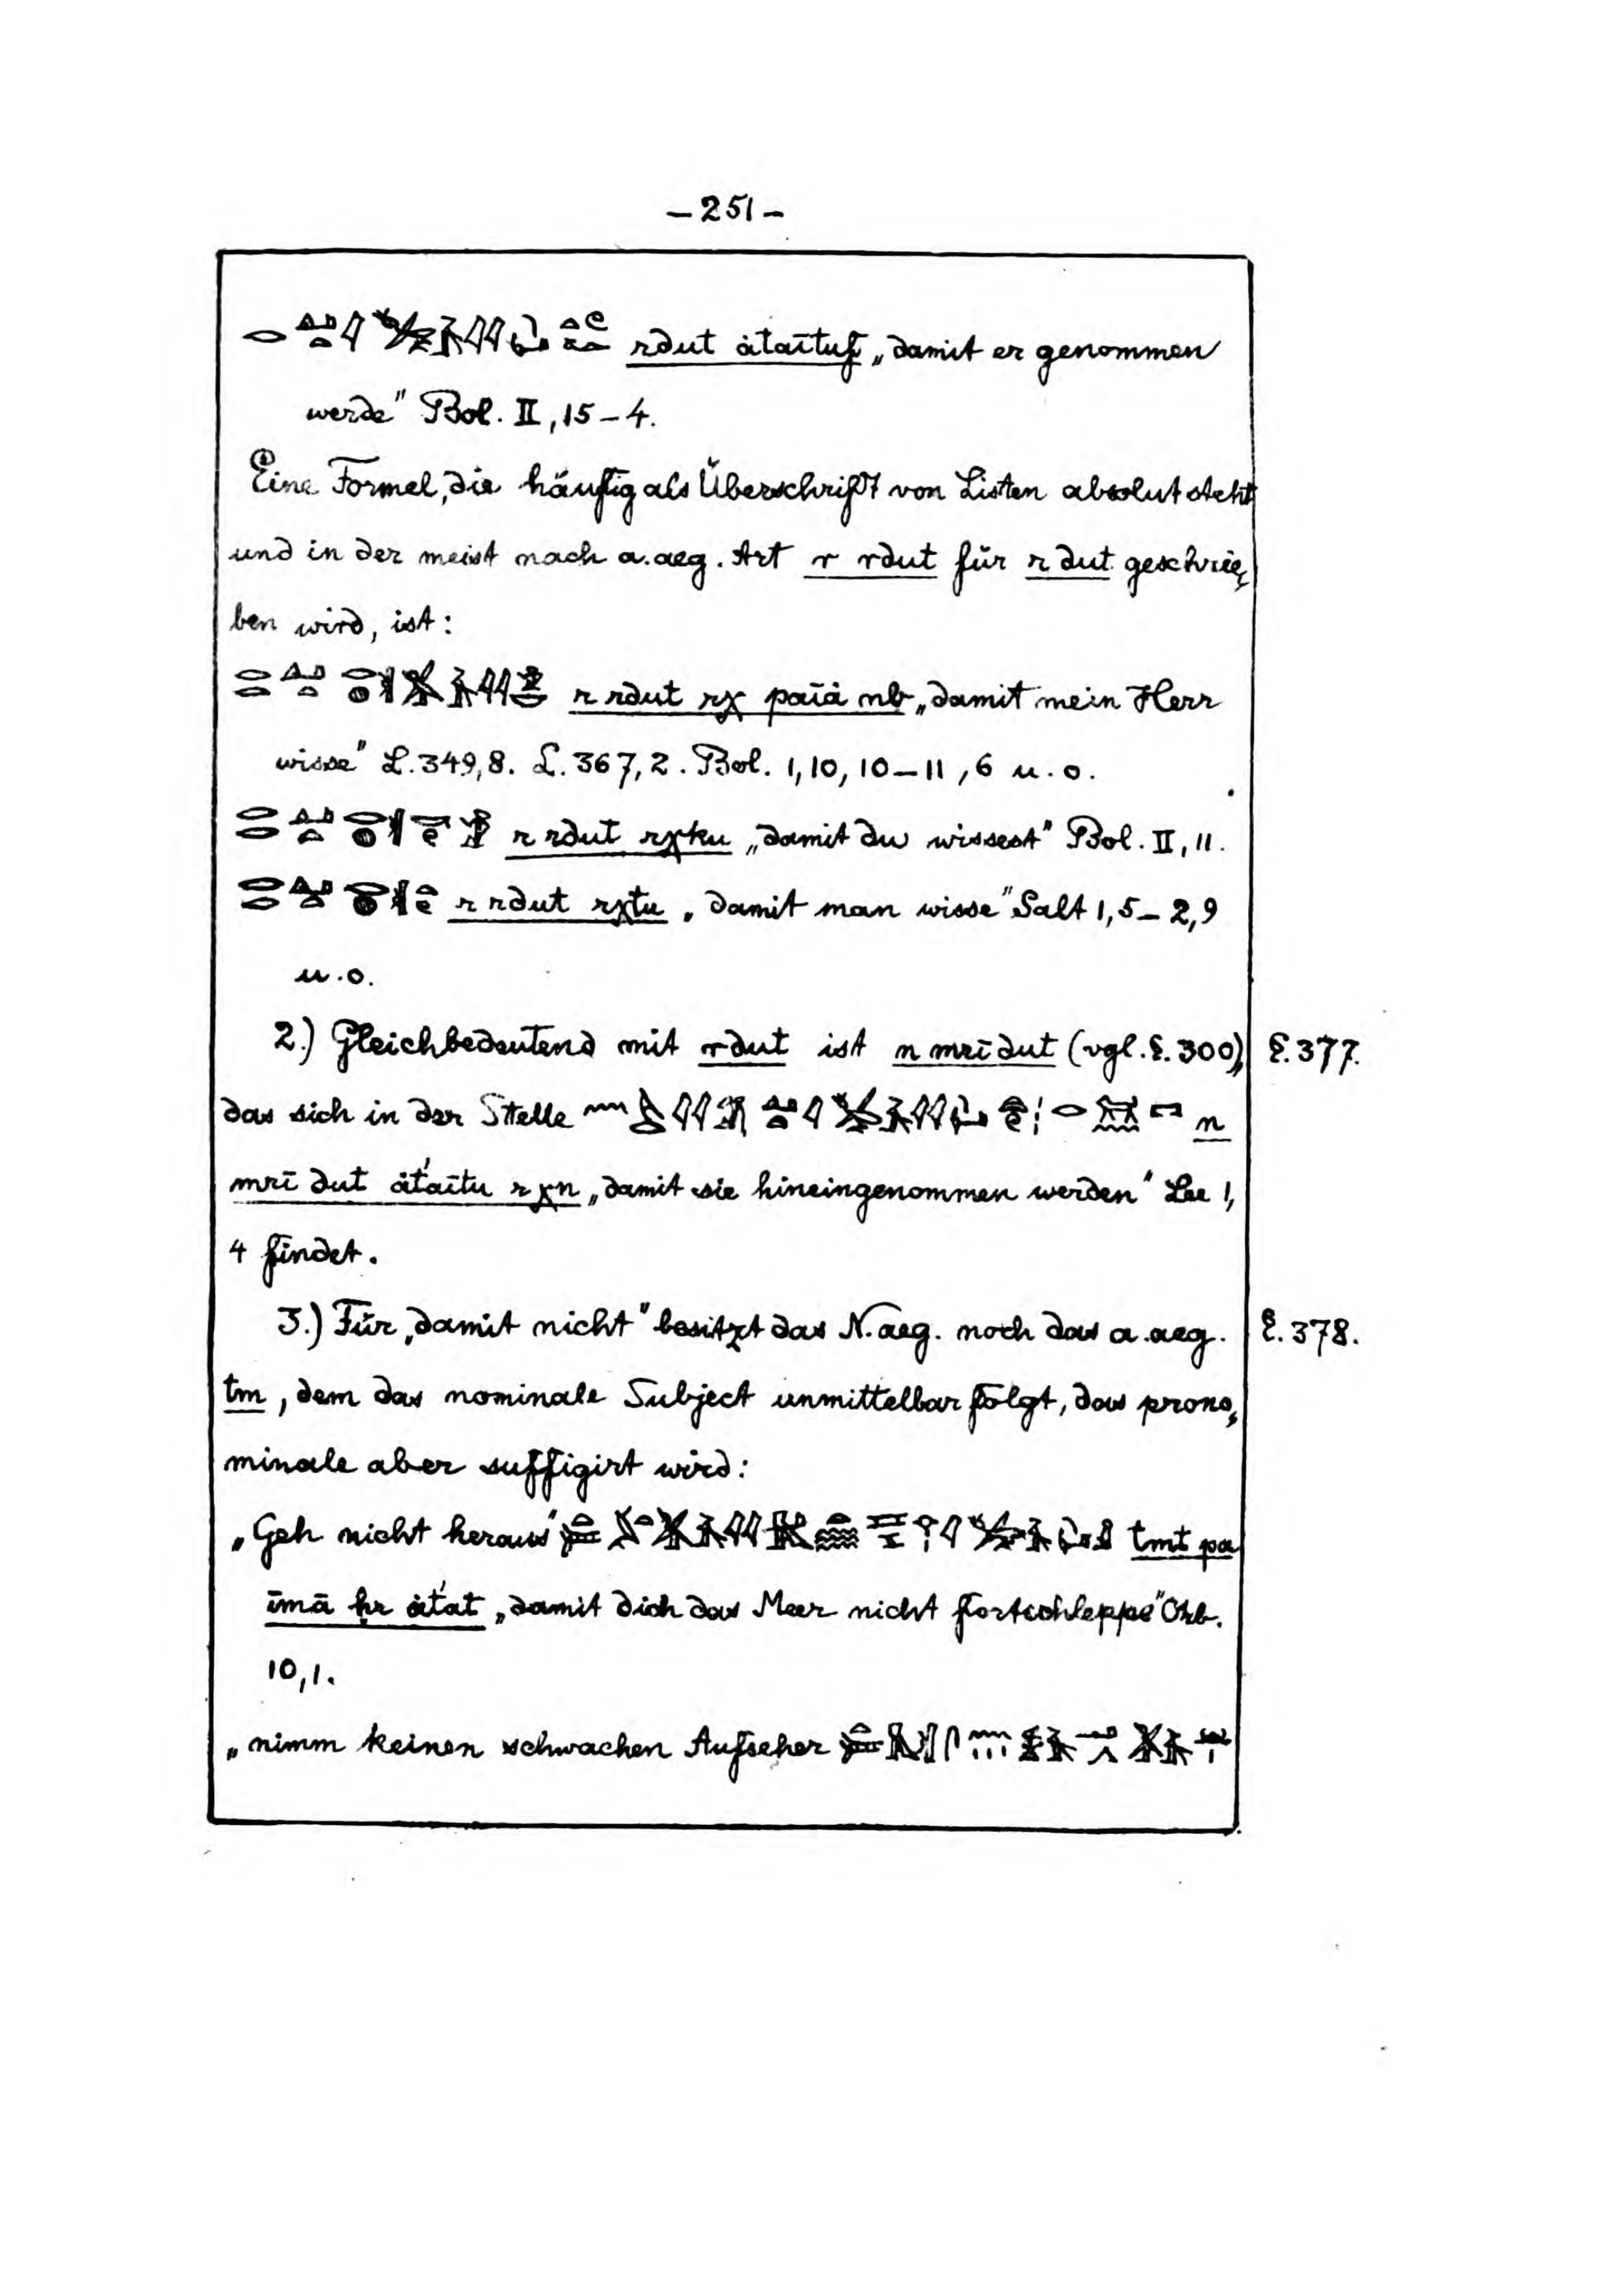 – 251 –
rdut ȧtaītuf „damit er genommen
werde" Bol. II, 15–4.
Eine Formel, die häufig als Überschrift von Listen absolut steht
und in der meist nach a.aeg. Art r rdut für rdut geschrie⸗
ben wird, ist:
r rdut rχ paīȧ nb „damit mein Herr
wisse" L. 349,8. L. 367,2. Bol. 1,10,10–11,6 u.o.
r rdut rχku „damit du wissest" Bol. II, 11.
r rdut rχtu „damit man wisse" Salt 1,5–2,9
u.o.
2.) Gleichbedeutend mit rdut ist n mrī dut (vgl. §. 300), §. 377.
das sich in der Stelle n
mrī dut ȧt'aītu r χn „damit sie hineingenommen werden" Lee 1,
4 findet.
3.) Für „damit nicht" besitzt das N.aeg. noch das a.aeg. §. 378.
tm, dem das nominale Subject unmittelbar folgt, das prono⸗
minale aber suffigirt wird:
„Geh nicht heraus" tmt pa
īmā ḥr ȧt'at „damit dich das Meer nicht fortschleppe" Orb.
10,1.
„nimm keinen schwachen Aufseher